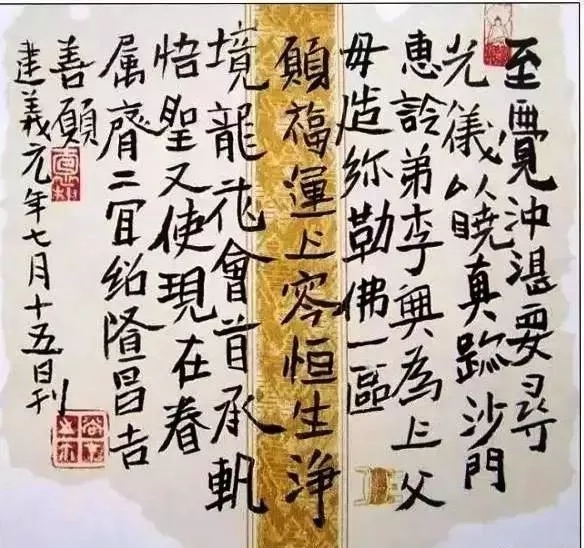 至覺沖湛要尋
光儀以曉真沙門
惠詮弟李興為上父
母造弥勒佛一區
願福運上零恒生淨
境龍花會首承軌
悟聖又使現在眷
属齊二宜紹隆昌吉
善願
建義元年七月十五日刊